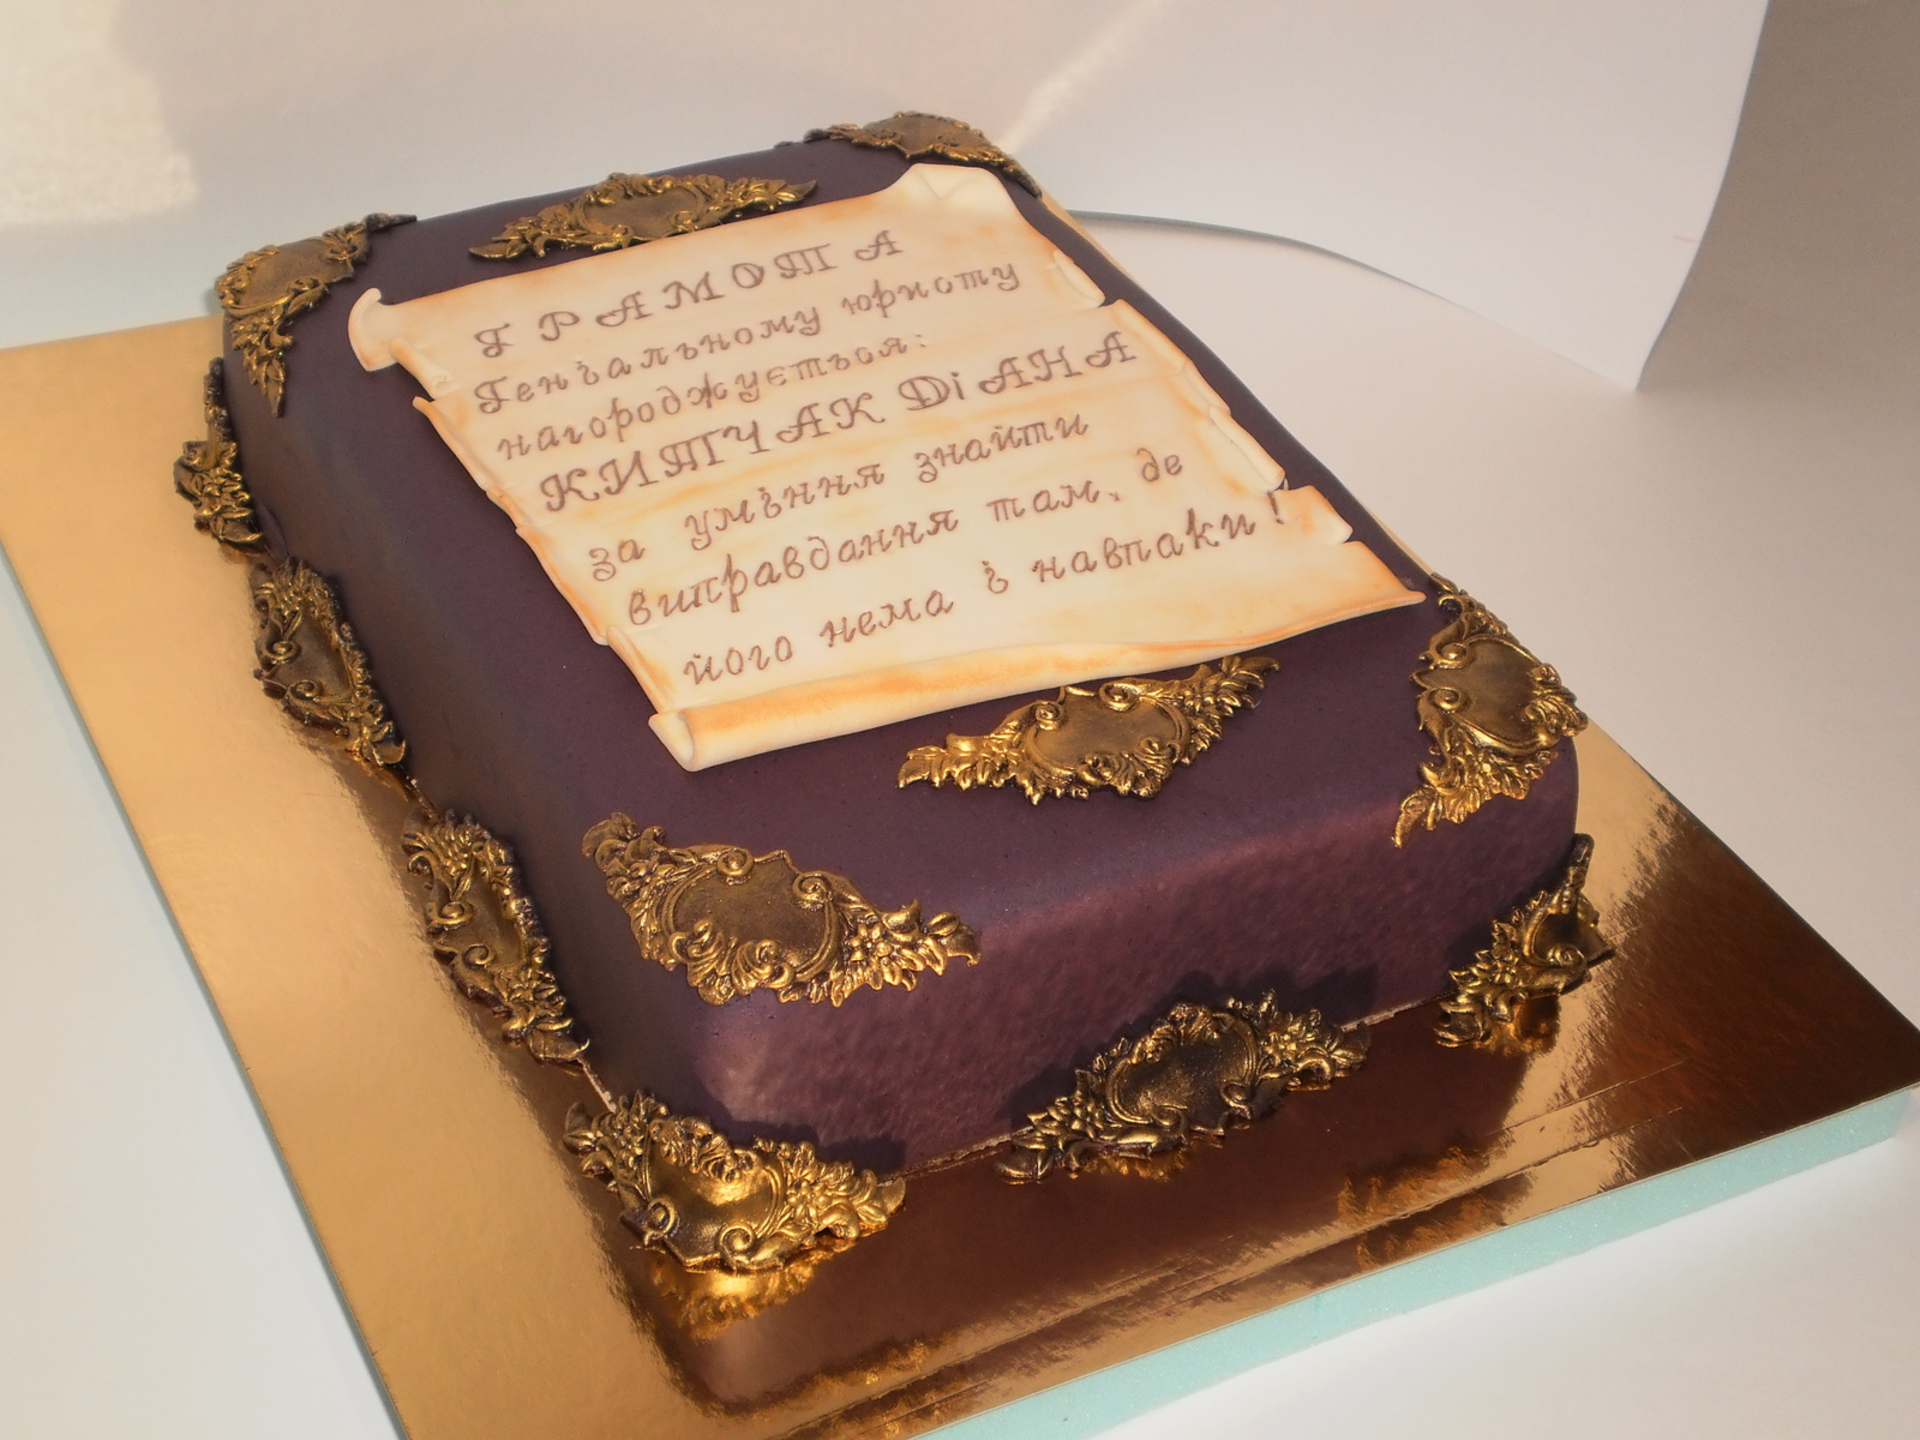 ГРАМОТА
Геніальному юристу
нагороджується:
КИПЧАК ДіАНА
за уміння знайти
виправдання там, де
його нема і навпаки!